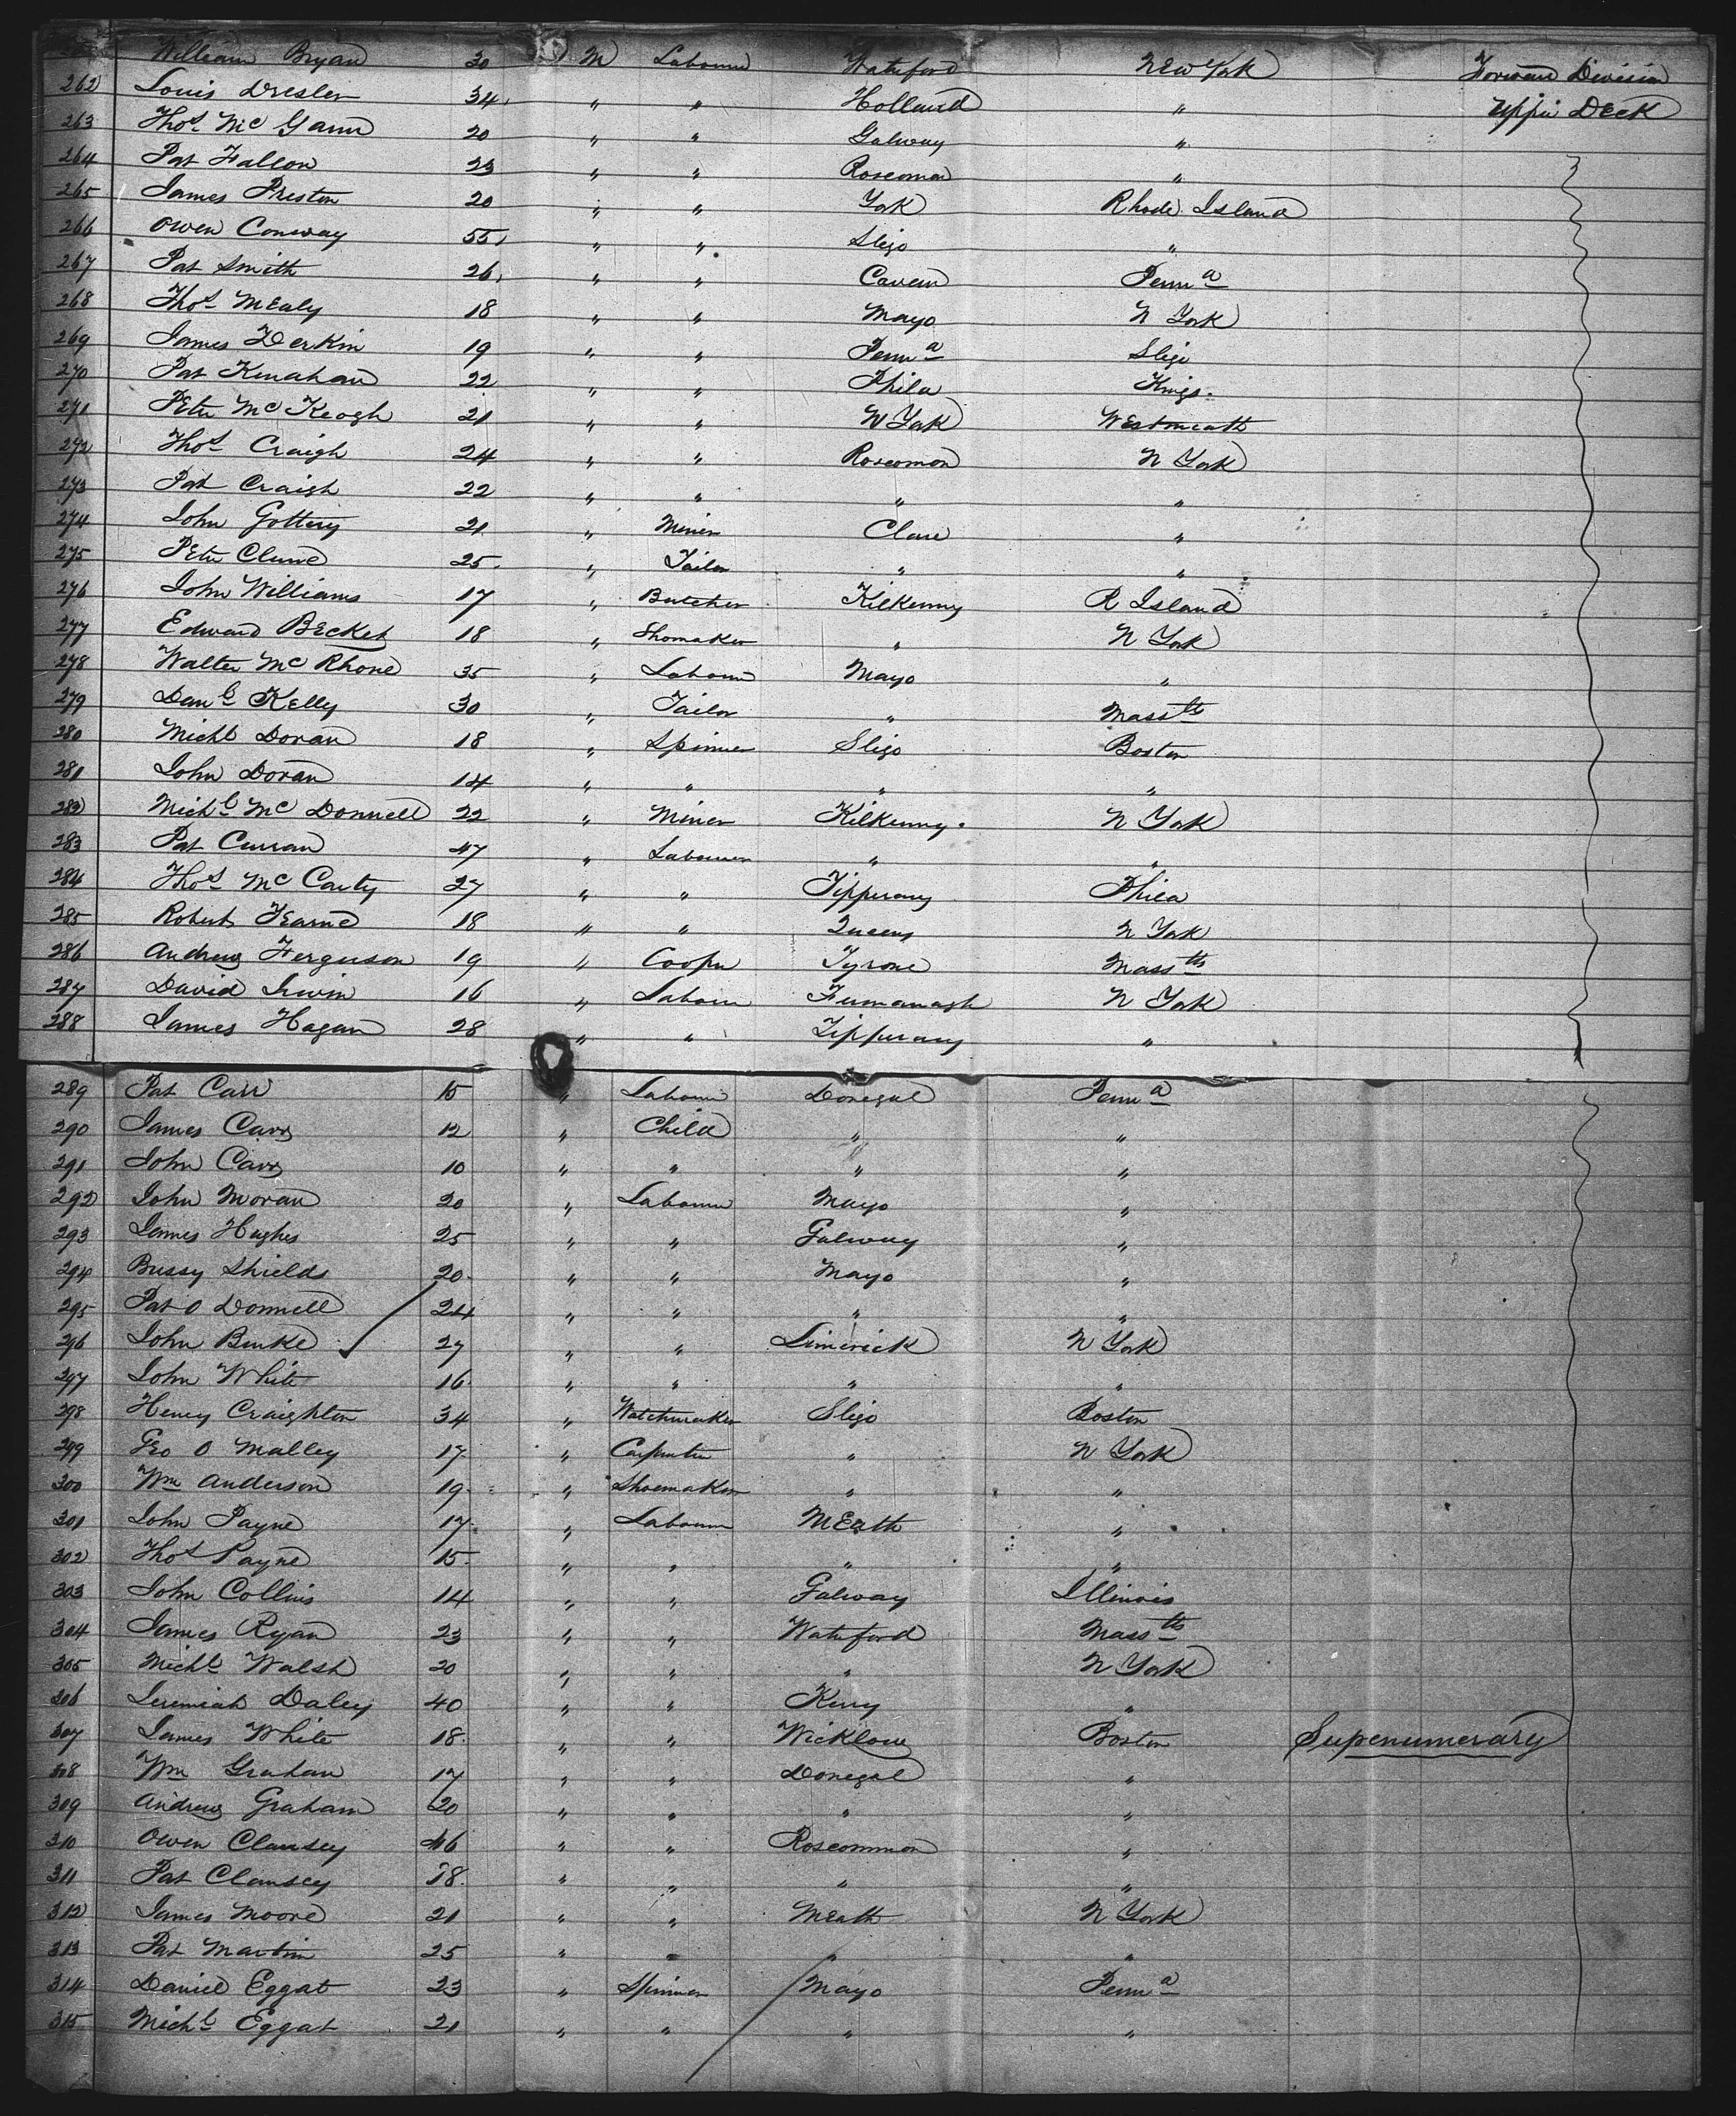 William Bryan 30 M Labourer Waterford New York Forward Division
262 Louis Dresler 34 " " Holland " Upper Deck
263 Thos Mc Gann 20 " " Galway "
264 Pat Fallon 23 " " Roscomon "
265 James Preston 20 " " York Rhode Island
266 Owen Conway 55 " " Sligo "
267 Pat Smith 26 " " Cavan Penna
268 Thos Mealy 18 " " Mayo N York
269 James Derkin 19 " " Penna Sligo
270 Pat Kinahan 22 " " Phila Kings
271 Peter Mc Keogh 21 " " N York Westmeath
272 Thos Craigh 24 " " Roscomon N York
273 Pat Craigh 22 " " " "
274 John Gottery 21 " Miner Clare "
275 Peter Clune 25 " Tailor " "
276 John Williams 17 " Butcher Kilkenny R Island
277 Edward Becket 18 " Shomaker " N York
278 Walter Mc Rhone 35 " Labourer Mayo "
279 Danl Kelly 30 " Tailor " Massts
280 Michl Doran 18 " Spinner Sligo Boston
281 John Doran 14 " " " "
282 Michl Mc Donnell 22 " Miner Kilkenny N York
283 Pat Curran 47 " Labourer " "
284 Thos Mc Carty 27 " " Tipperary Phila
285 Robert Fearne 18 " " Queens N York
286 Andrew Ferguson 19 " Cooper Tyrone Massts
287 David Irwin 16 " Labourer Furmanagh N York
288 James Hagan 28 " " Tipperary "
289 Pat Carr 15 " Labourer Donegal Penna
290 James Carr 12 " Child " "
291 John Carr 10 " " " "
292 John Moran 20 " Labourer Mayo "
293 James Hughes 25 " " Galway "
294 Bussy Shields 20 " " Mayo "
295 Pat O Donnell 24 " " " "
296 John Burke 27 " " Limerick N York
297 John White 16 " " " "
298 Henry Craighton 34 " Watchmaker Sligo Boston
299 Geo O Malley 17 " Carpenter " N York
300 Wm Anderson 19 " Shoemaker " "
301 John Payne 17 " Labourer Meath "
302 Thos Payne 15 " " " "
303 John Collins 14 " " Galway Illinois
304 James Ryan 23 " " Waterford Massts
305 Michl Walsh 20 " " " N York
306 Jeremiah Daley 40 " " Kerry "
307 James White 18 " " Wicklow Boston Supenumerary
308 Wm Graham 17 " " Donegal "
309 Andrew Graham 20 " " " "
310 Owen Clansey 46 " " Roscommon "
311 Pat Clansey 18 " " " "
312 James Moore 21 " " Meath N York
313 Pat Martin 25 " " " "
314 Daniel Eggat 23 " Spinner Mayo Penna
315 Michl Eggat 21 " " " "